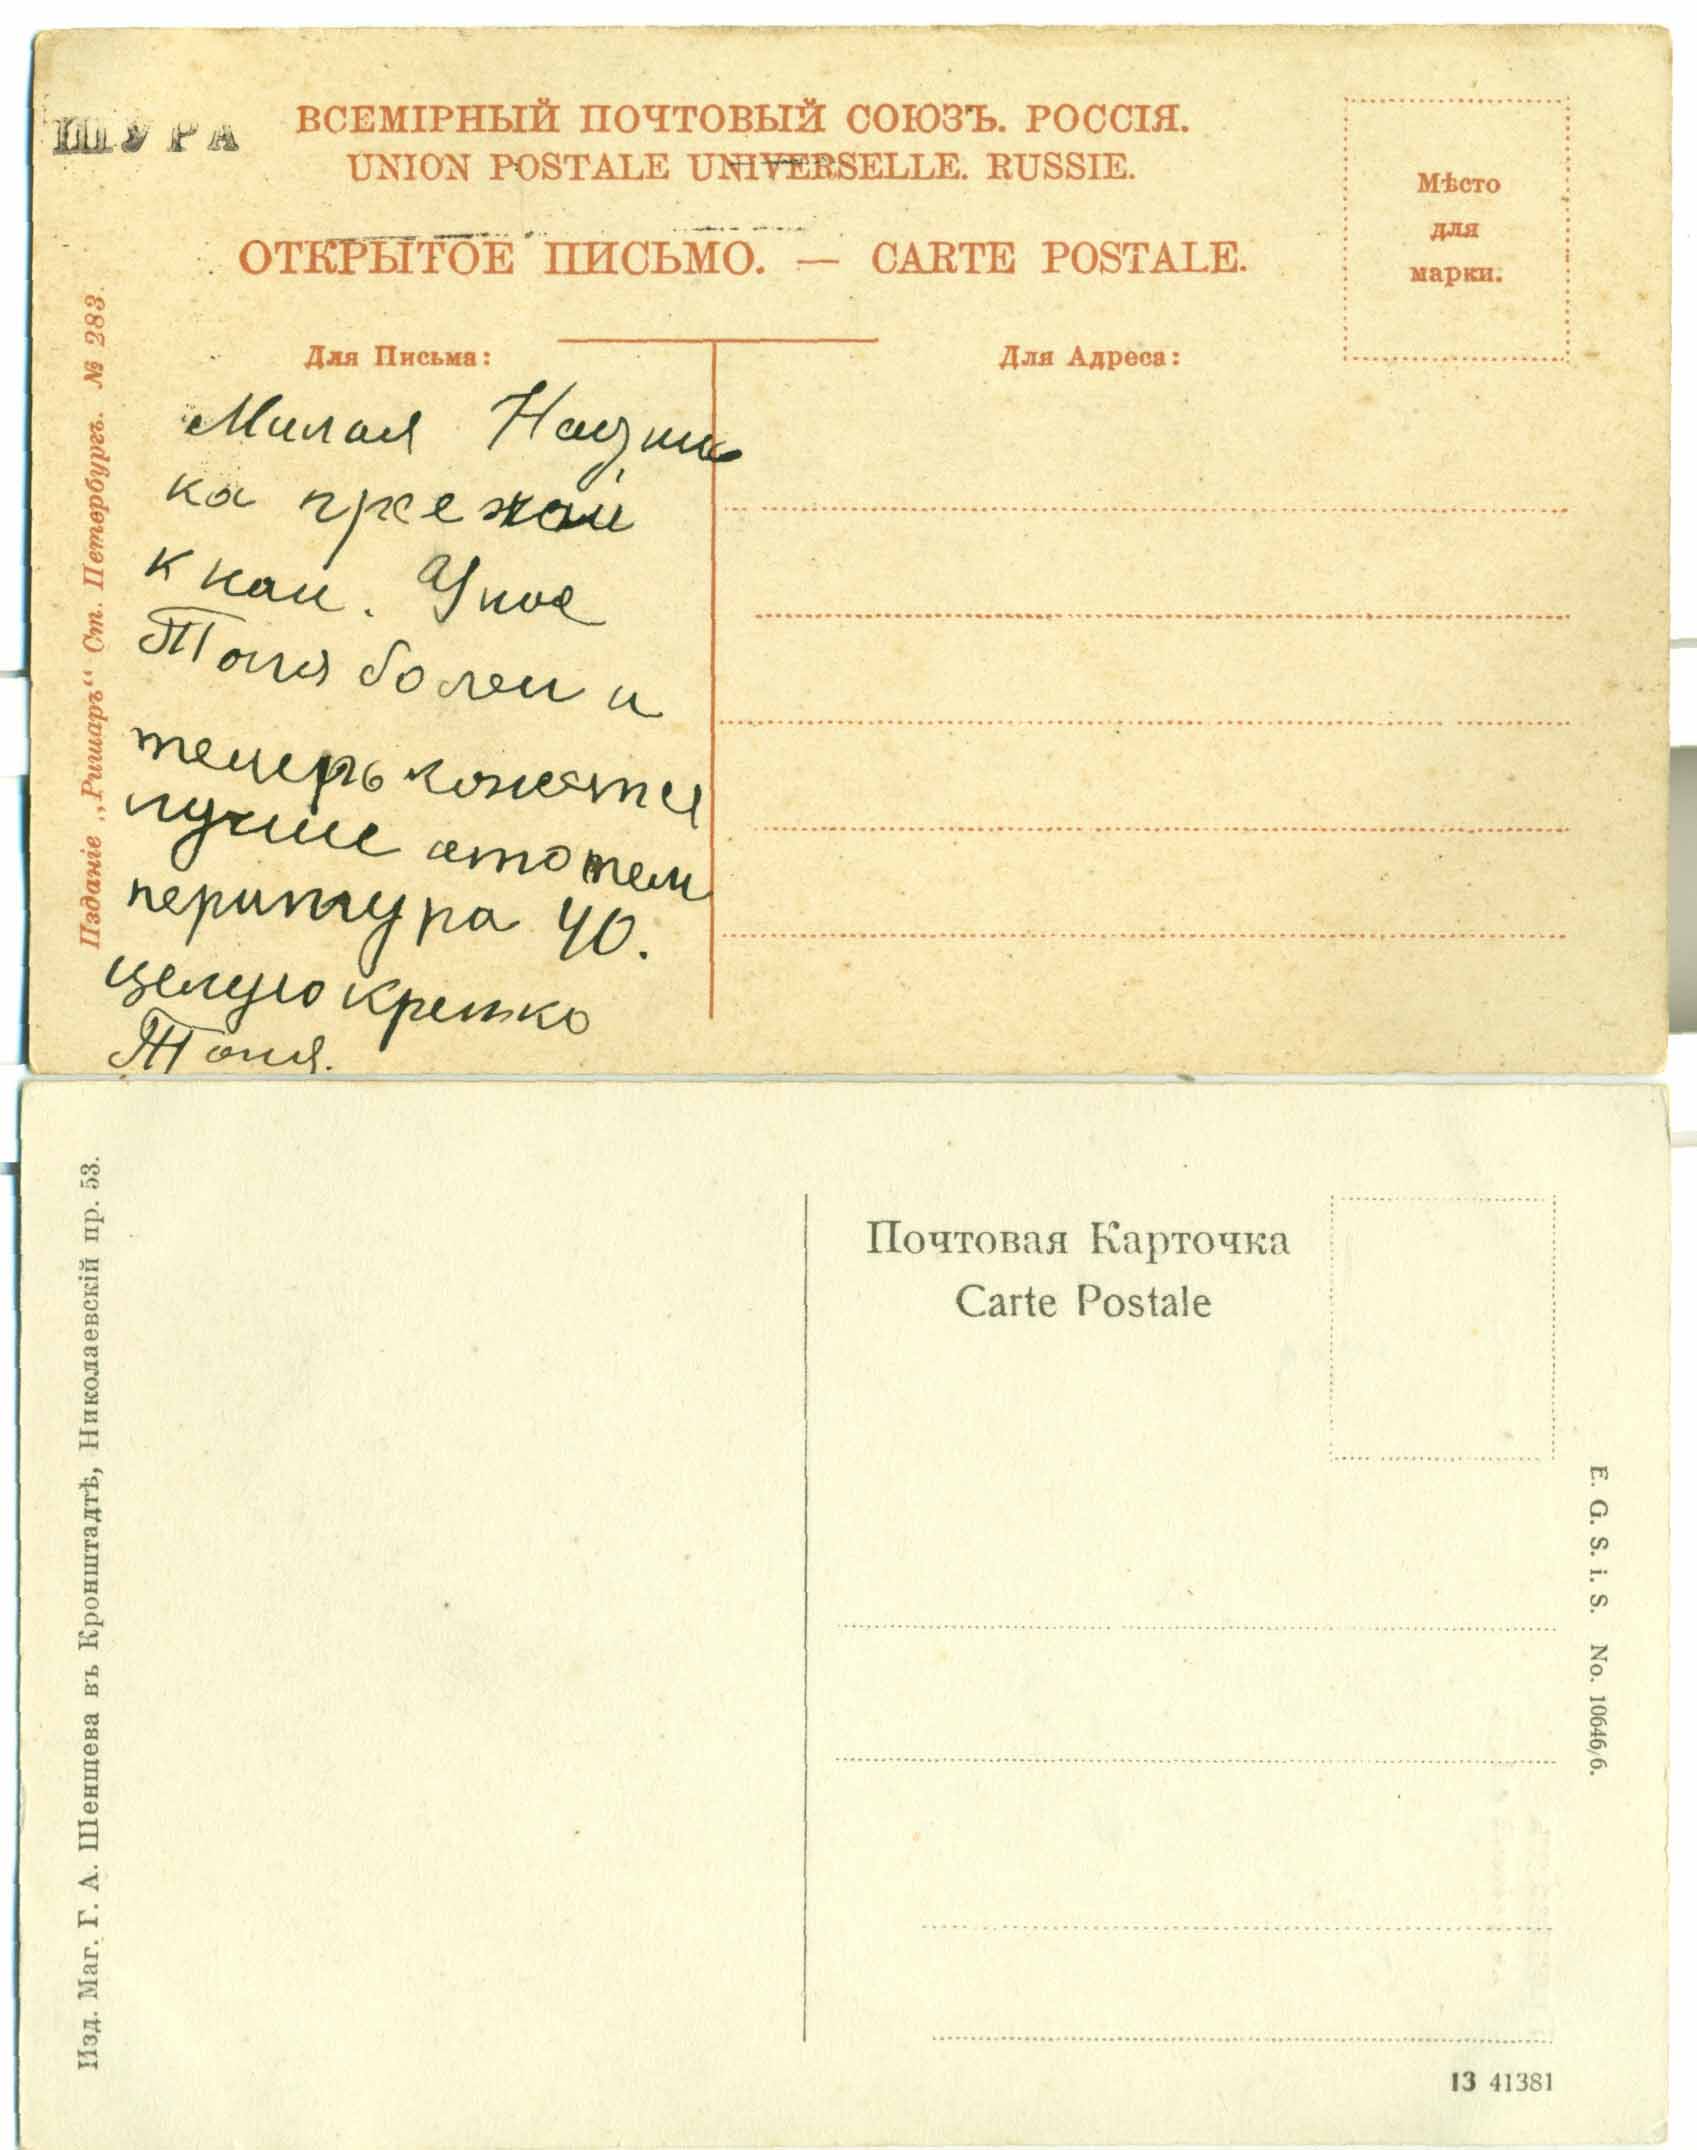 ШУРА
ВСЕМІРНЫЙ ПОЧТОВЫЙ СОЮЗЪ. РОССІЯ.
UNION POSTALE UNIVERSELLE. RUSSIE.
ОТКРЫТОЕ ПИСЬМО. — CARTE POSTALE.
Мѣсто
для
марки.
Для Письма:
Для Адреса:
Милая Надзи
ка
к нам.
Тоня болеи и
теперь кажется
лучше
перитура 40.
целую крепко
Тоня.
Изданіе „Ришаръ“ Ст. Петербургъ. № 283.
Почтовая Карточка
Carte Postale
Изд. Маг. Г. А. Шенцева въ Кронштадтѣ, Николаевскій пр. 53.
E. G. S. i. S. No. 10646/6.
13 41381